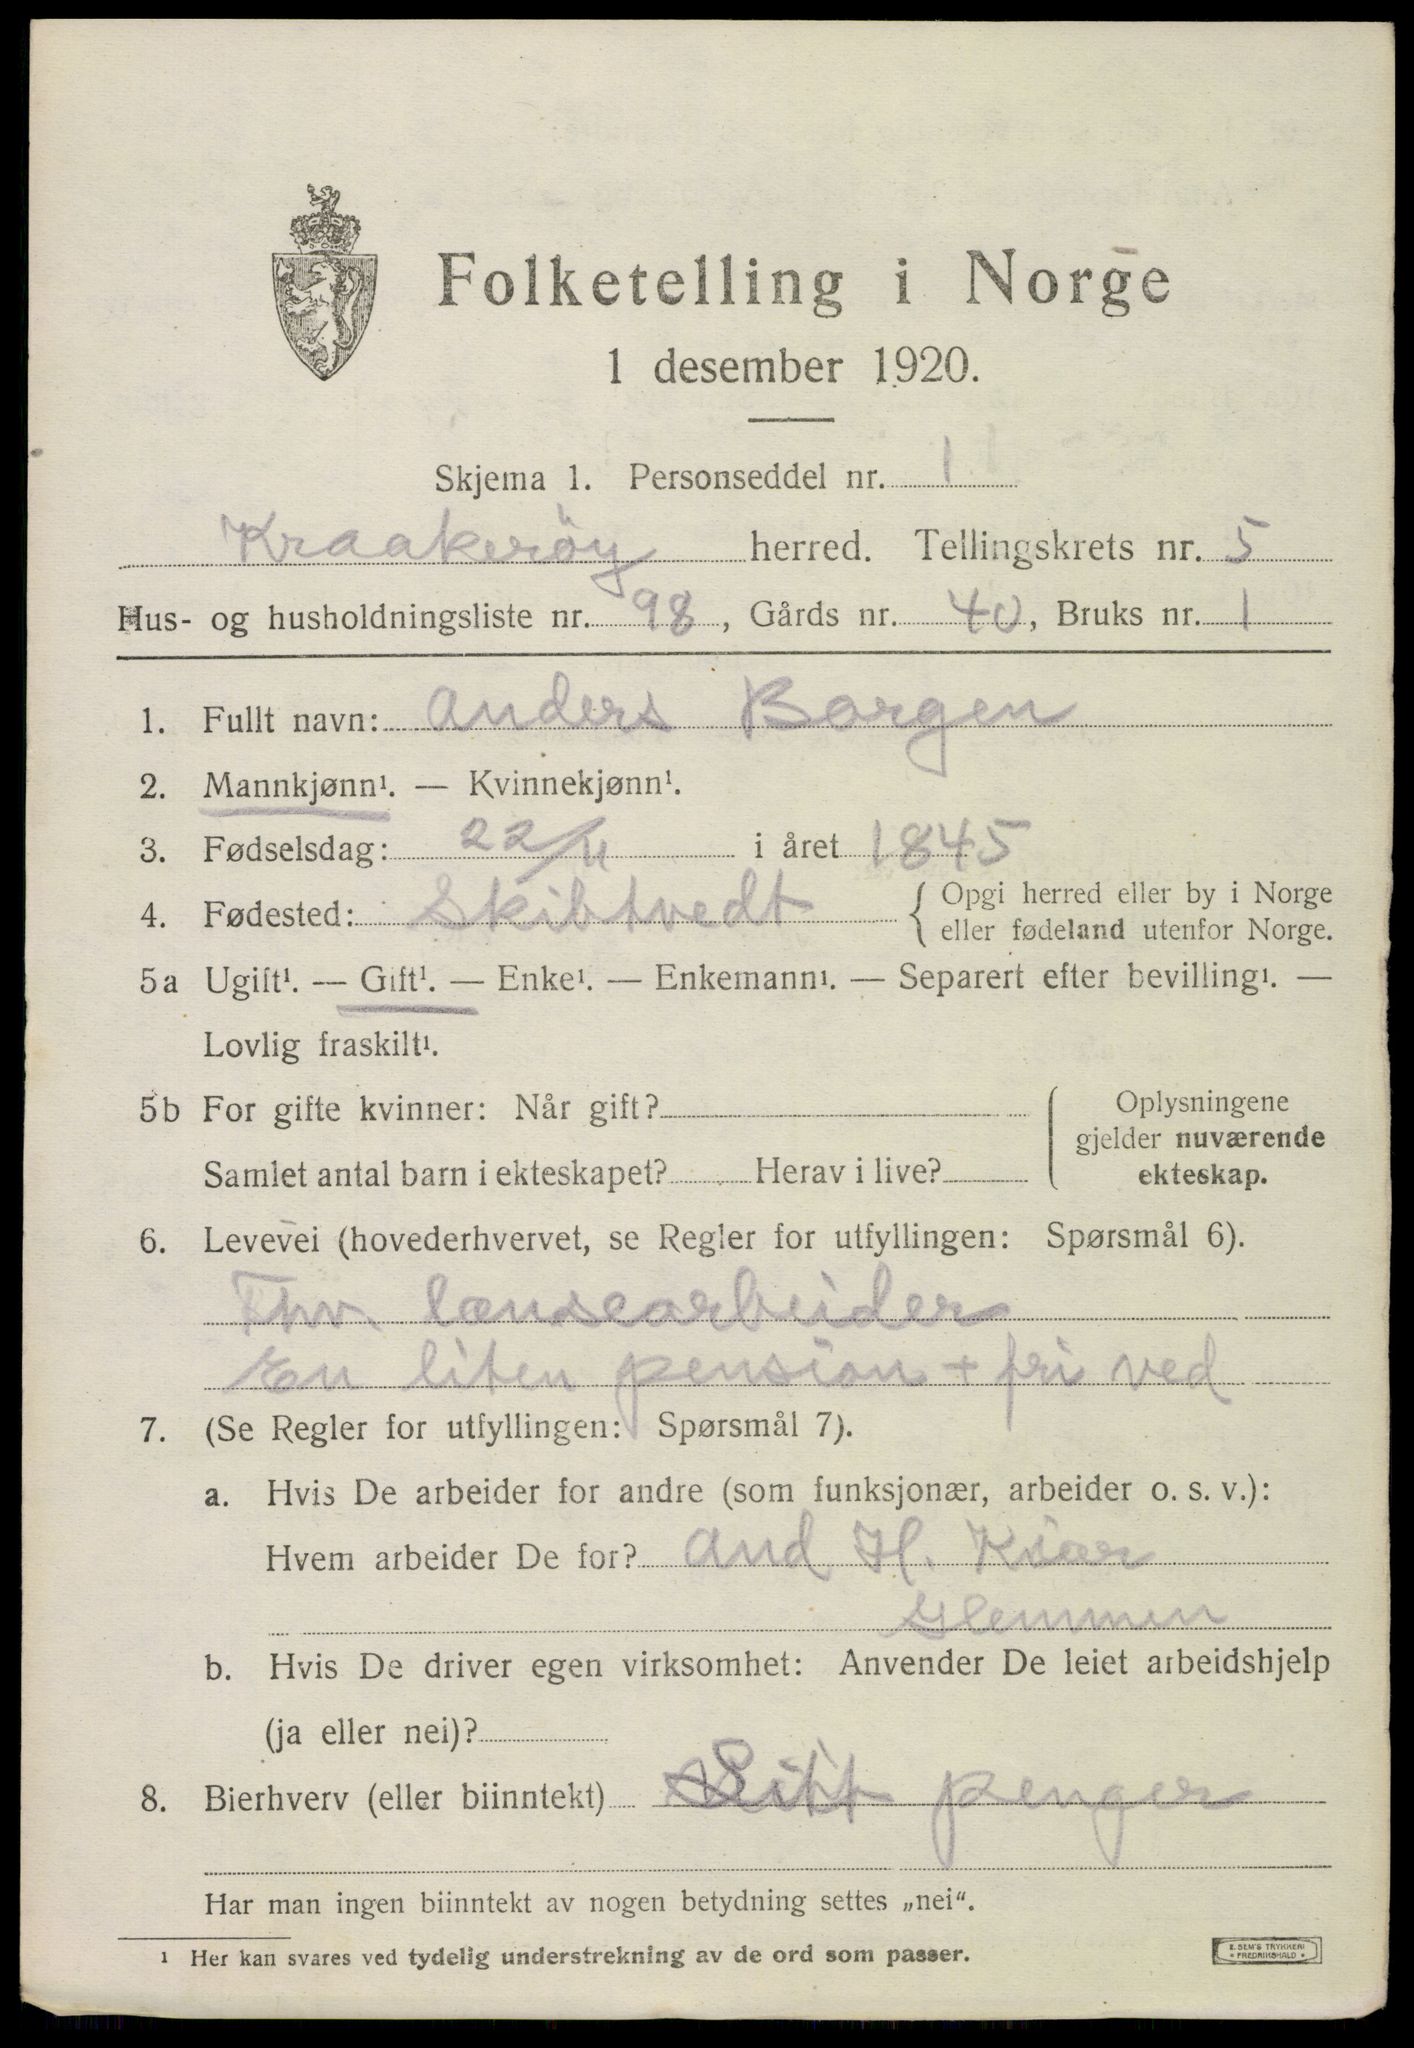 Folketelling i Norge
1 desember 1920.
Skjema 1. Personseddel nr. 1
Kraakerøy herred. Tellingskrets nr. 5
Hus- og husholdningsliste nr. 98, Gårds nr. 40, Bruks nr. 1
1. Fullt navn: Anders Borgen
2. Mannkjønn¹. — Kvinnekjønn¹.
3. Fødselsdag: 22/11 i året 1845
4. Fødested: Skibtvedt { Opgi herred eller by i Norge
eller fødeland utenfor Norge.
5a Ugift¹. — Gift¹. — Enke¹. — Enkemann¹. — Separert efter bevilling¹. —
Lovlig fraskilt¹.
5b For gifte kvinner: Når gift? ( Oplysningene
gjelder nuværende
Samlet antal barn i ekteskapet? Herav i live? ekteskap.
6. Levevei (hovederhvervet, se Regler for utfyllingen: Spørsmål 6).
Fhv. lænsearbeider
En liten pension + fri ved
7. (Se Regler for utfyllingen: Spørsmål 7).
a. Hvis De arbeider for andre (som funksjonær, arbeider o. s. v.):
Hvem arbeider De for? And. H. Kiær
Glemmen
b. Hvis De driver egen virksomhet: Anvender De leiet arbeidshjelp
(ja eller nei)?
8. Bierhverv (eller biinntekt) Litt penger
Har man ingen biinntekt av nogen betydning settes „nei“.
¹ Her kan svares ved tydelig understrekning av de ord som passer.
E. SEM'S TRYKKERI
FREDRIKSHALD